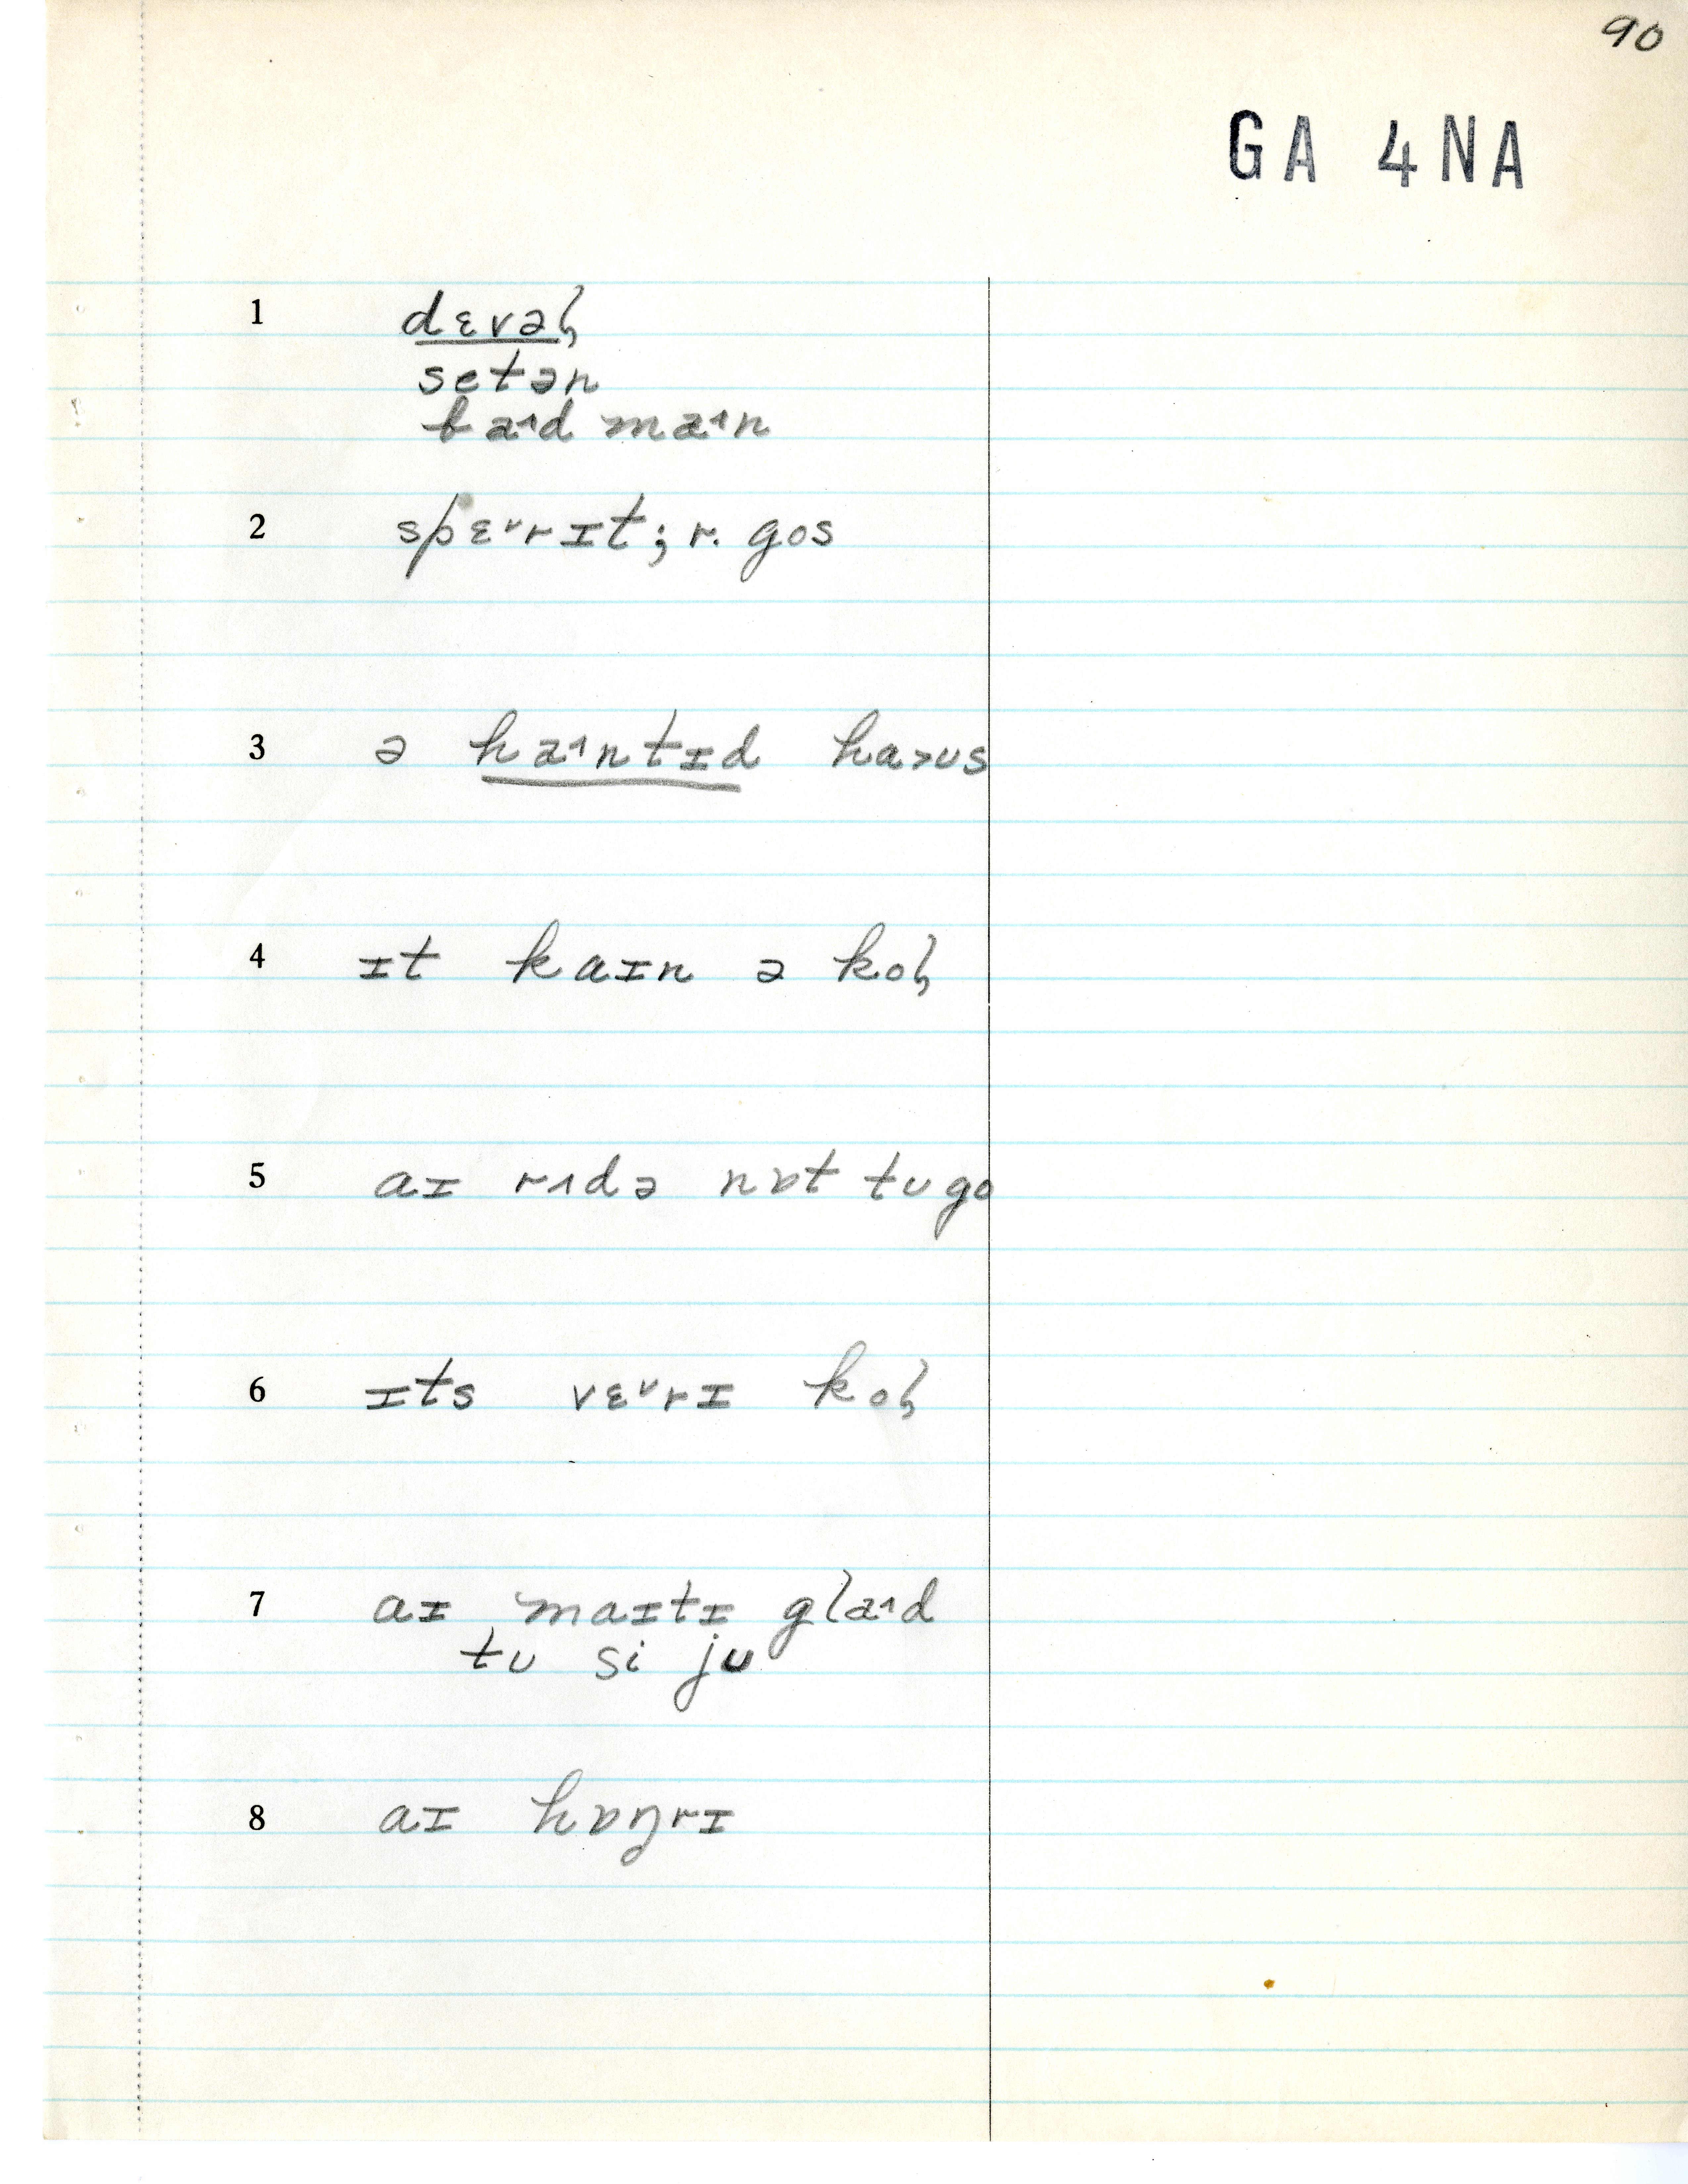 90
GA 4NA
1 dɛvəɫ
setən
ba˄d ma˄n
2 spɛ˅rɪt; r. gos
3 ə ha˄ntɪd ha˃ʊs
4 ɪt kaɪn ə koɫ
5 aɪ r˄də nɒt tʊ go
6 ɪts vɛ˅rɪ koɫ
7 aɪ maɪtɪ gla˄d
tʊ si ju
8 aɪ hɒŋrɪ